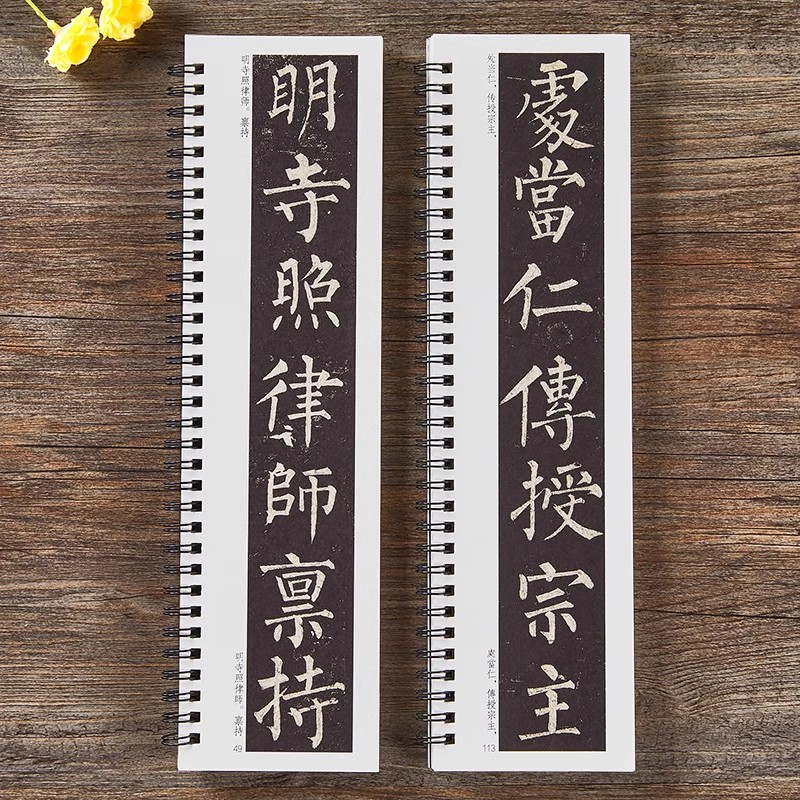 明寺照律师。禀持
明寺照律師禀持
明寺照律師。禀持
49
处当仁，传授宗主，
處當仁傳授宗主
處當仁，傳授宗主，
113